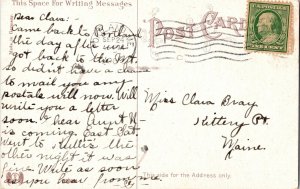 This Space for Writing Messages
POST CARD
Dear Clara:-
Came back to Portland
the day after we
got back to the Mt.
so didn't have a chance
to mail you any
postals will now. Will
write you a letter
soon. I hear Aunt H-
is coming East Sat.
Went to the
other night it was
fine Write as soon
as you hear from me.
Miss Clara Bray
Kittery Pt.
Maine.
This side for the Address only.